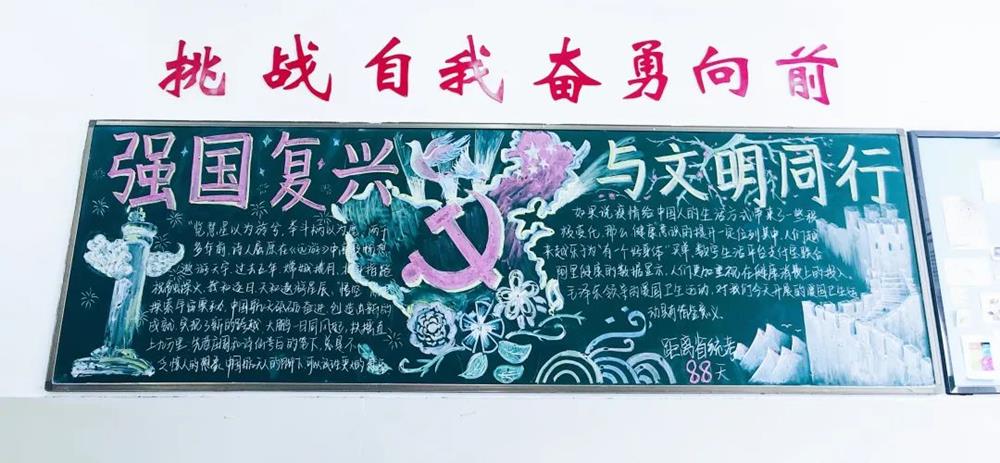 挑战自我奋勇向前
强国复兴
与文明同行
"览彗星以为旍兮,举斗柄以为麾。"两千
多年前,诗人屈原在《远游》中
遨游天宇。过去五年,嫦娥揽月,
祝融探火,羲和逐日,天和遨游星辰,悟空
探索宇宙奥妙,中国航天砥砺奋进,创造出新的
成就,实现了新的跨越。大鹏一日同风起,扶摇直
上九万里。先贤屈原和诗仙李白的笔下,总是不
乏惊人的想象,中国航天人的脚下,可以
如果说疫情给中国人的生活方式带来了一些积
极变化,那么,健康意识的提升一定位列其中,人们越
来越乐于为"有个好身体"买单,数字生活平台支付宝联合
阿里健康的数据显示,人们更加重视在健康消费上的投入。
毛泽东领导的爱国卫生运动,对我们今天开展的爱国卫生运
动具有借鉴意义。
距离省统考
88天